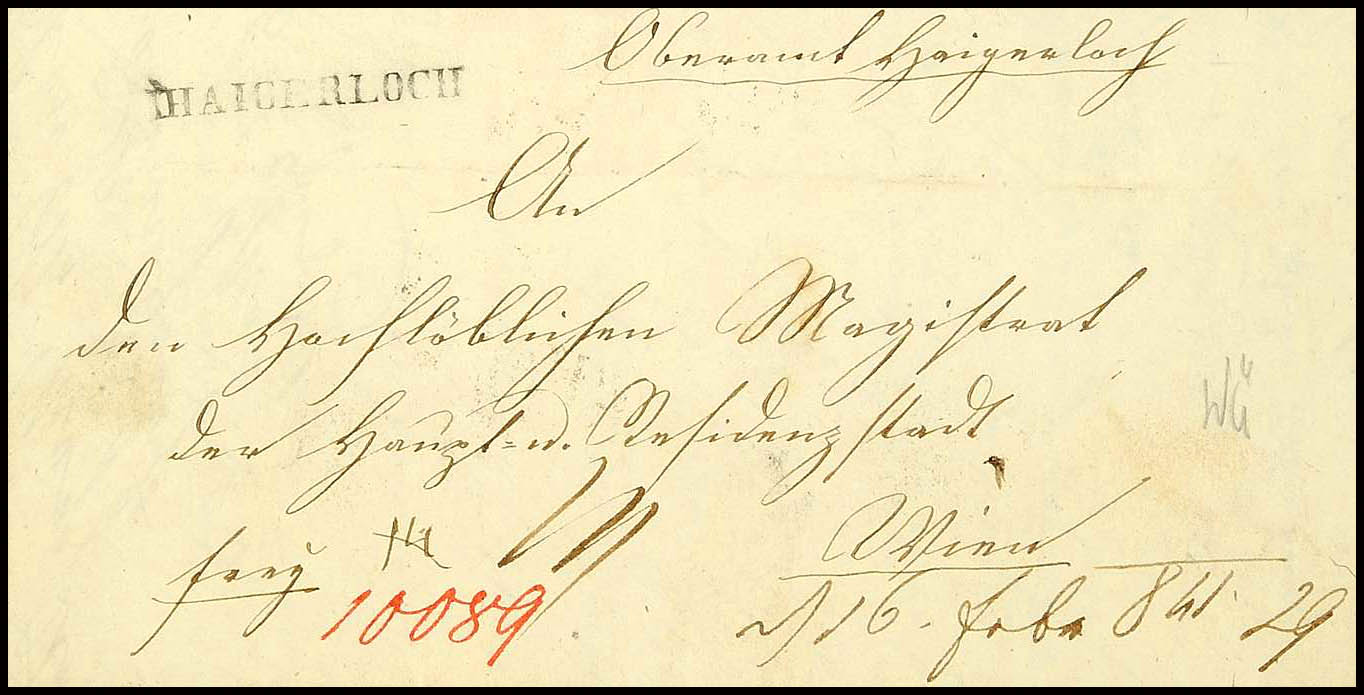 HAIGERLOCH
Oberamt Haigerloch
An
den Hochlöblichen Magistrat
der Haupt- u. Residenzstadt
Wien
frey
10089
16. Febr 841. 29